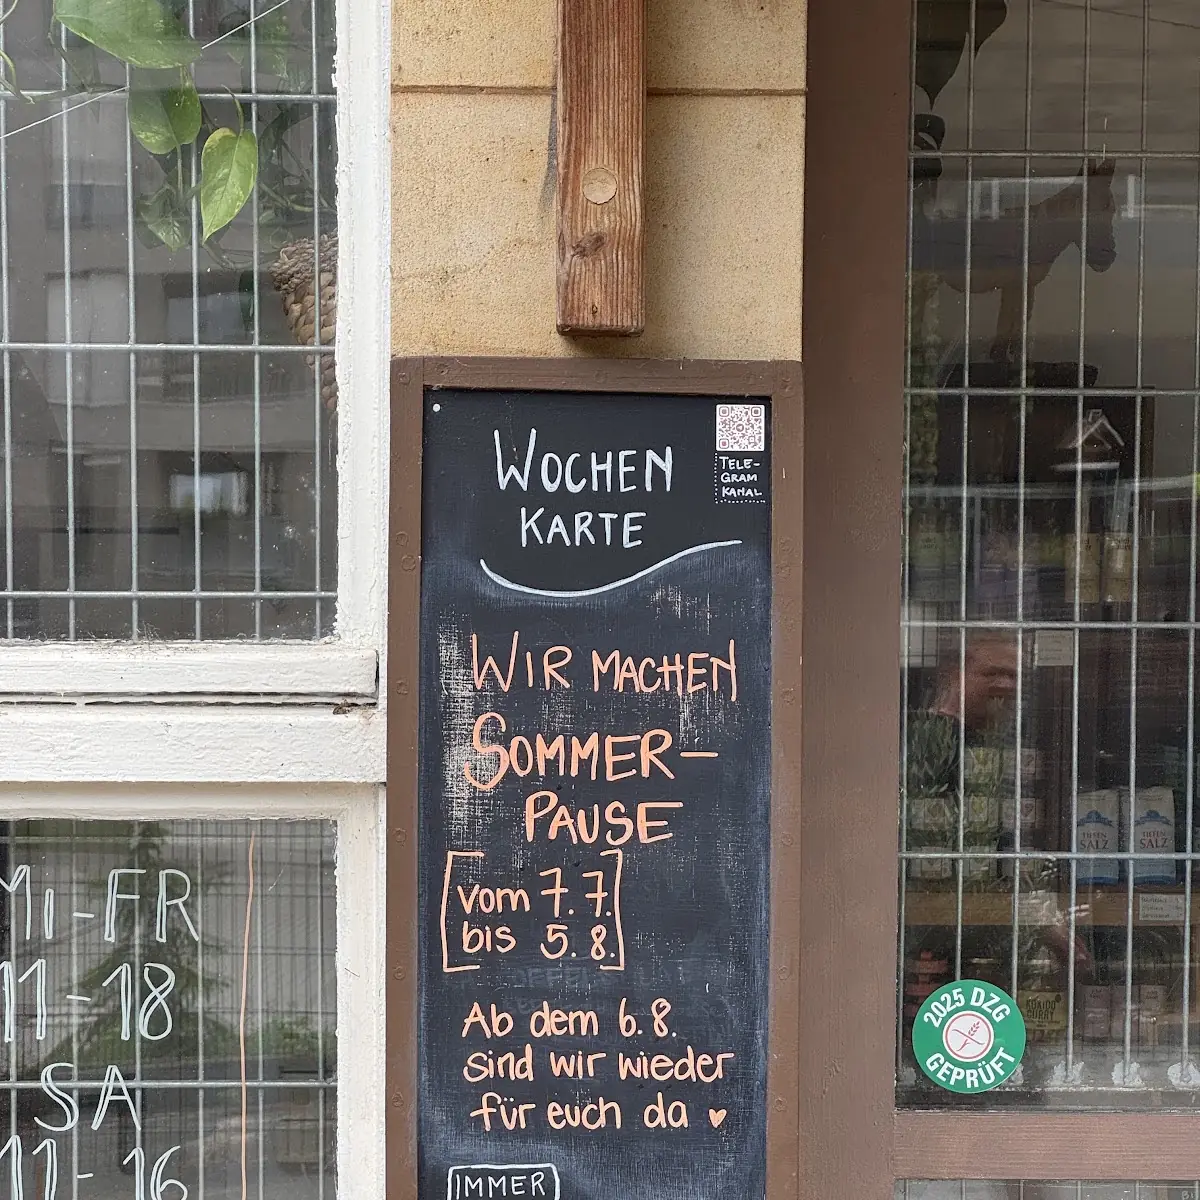 WOCHEN
KARTE
TELE-
GRAM
KANAL
WIR MACHEN
SOMMER-
PAUSE
vom 7.7.
bis 5.8.
Ab dem 6.8.
sind wir wieder
für euch da ♥
IMMER
MI-FR
11-18
SA
11-16
TIEFEN
SALZ
TIEFEN
SALZ
2025 DZG
GEPRÜFT